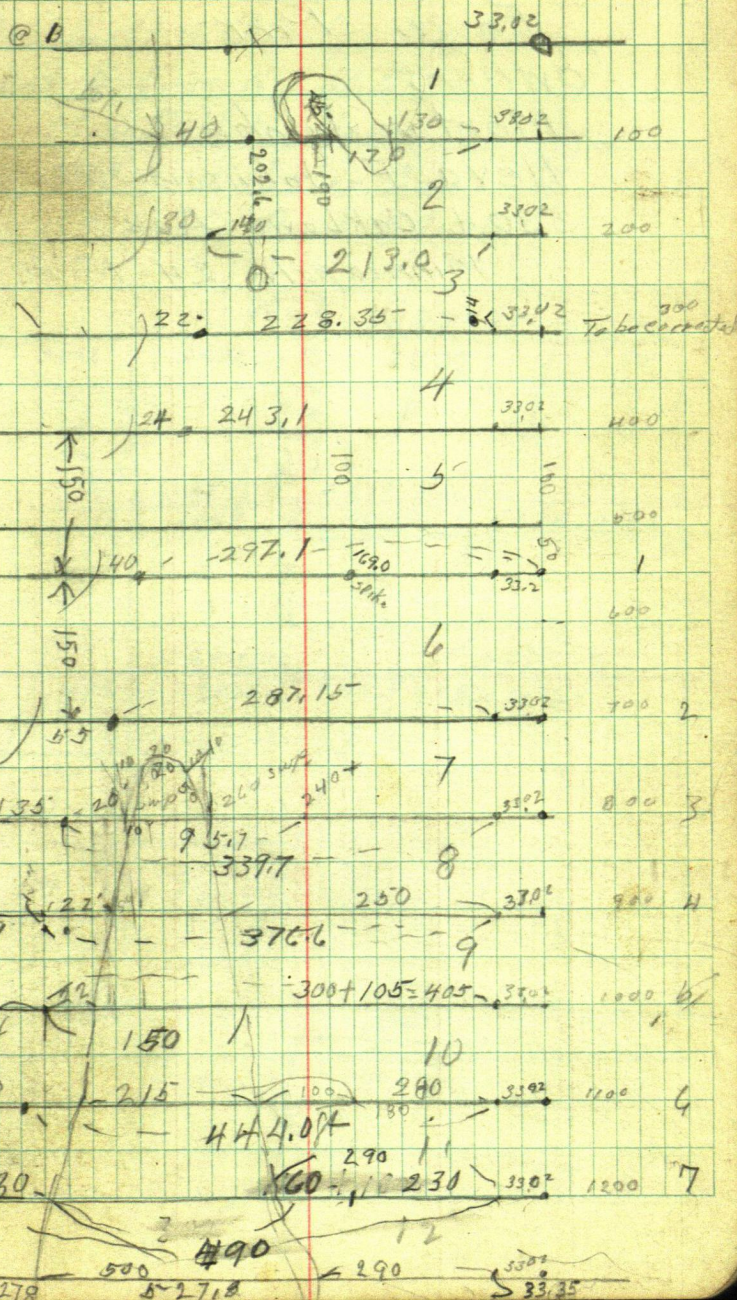 @ B 33.02
1
40 130 3302 100
170
202.6 190
2
30 140 3302 200
213.0 3
22 228.35 33.02 300
To be corrected
4
24 243.1 3302 400
150 100 5 100
500
40 297.1 169.0 50 1
spik. 33.2
600
150 6
287.15 3302 700 2
55
20 10
7
135 20 260 swp 240+ 3302 800 3
95.7
339.7 8
22 250 33.02 900 4
376.6 9
22 300+105=405 33.02 1000
150 10
215 100 280 3302 1100 6
180
444.0ft 11
290
30 60 230 3302 1200 7
12
490
500 290 3302
278 527.8 33.35